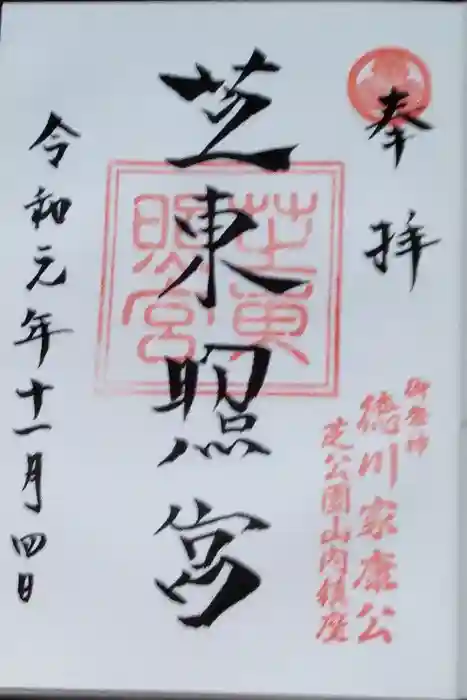 奉拝
御祭神
徳川家康公
芝公園山内鎮座
芝東照宮
芝東照宮
令和元年十一月四日